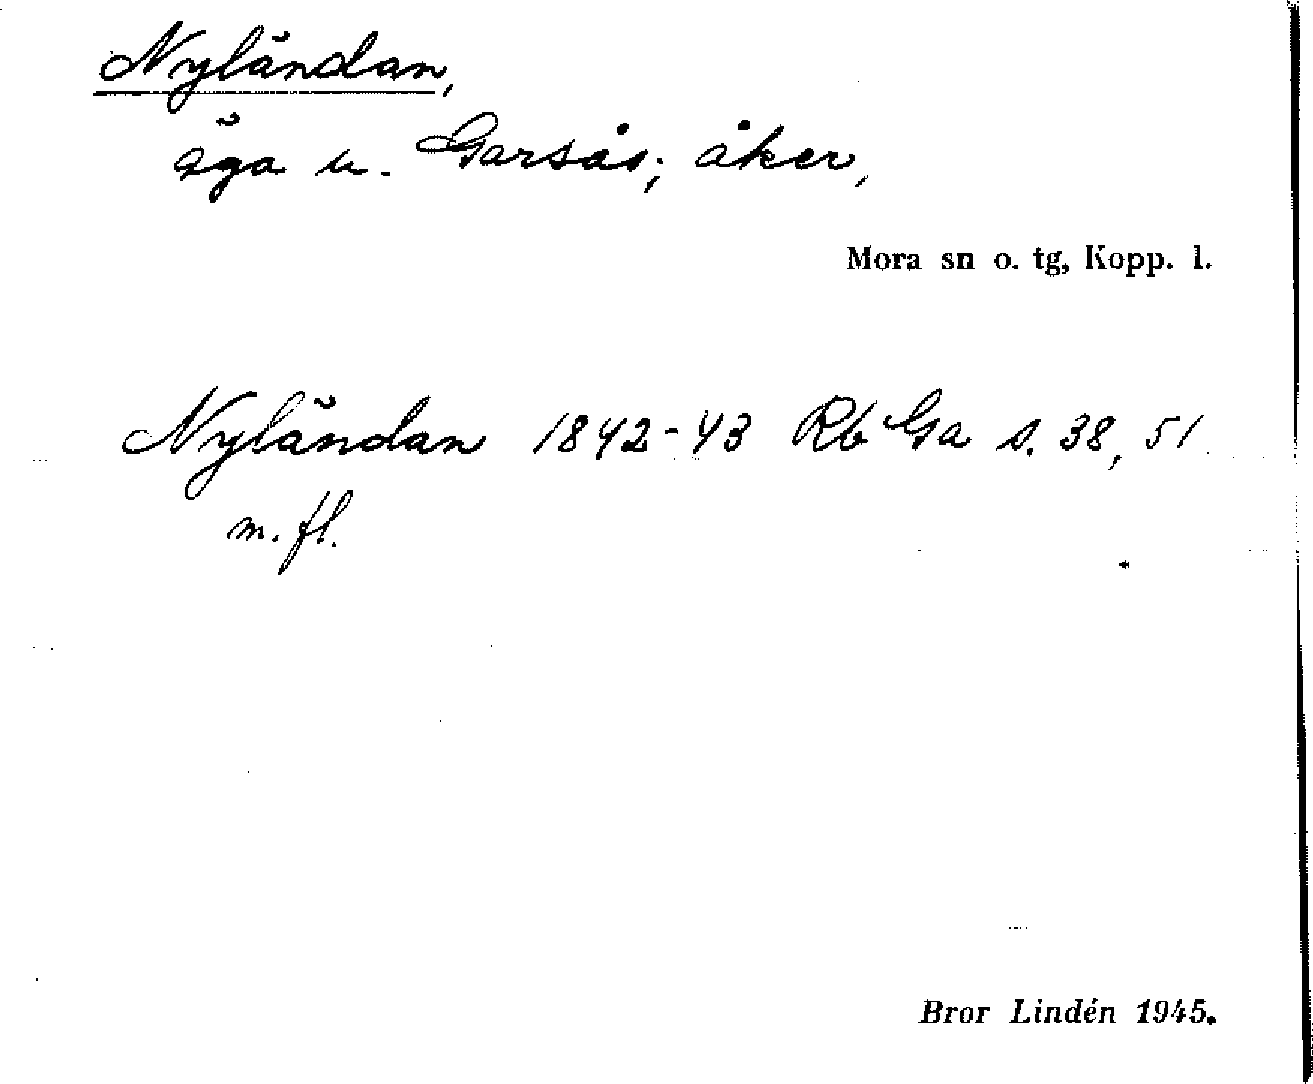 Nyländan,
äga u. Garsås; åker,
Mora sn o. tg, Kopp. l.
Nyländan 1842-43 Rb Ga s. 38, 51
m. fl.
Bror Lindén 1945.